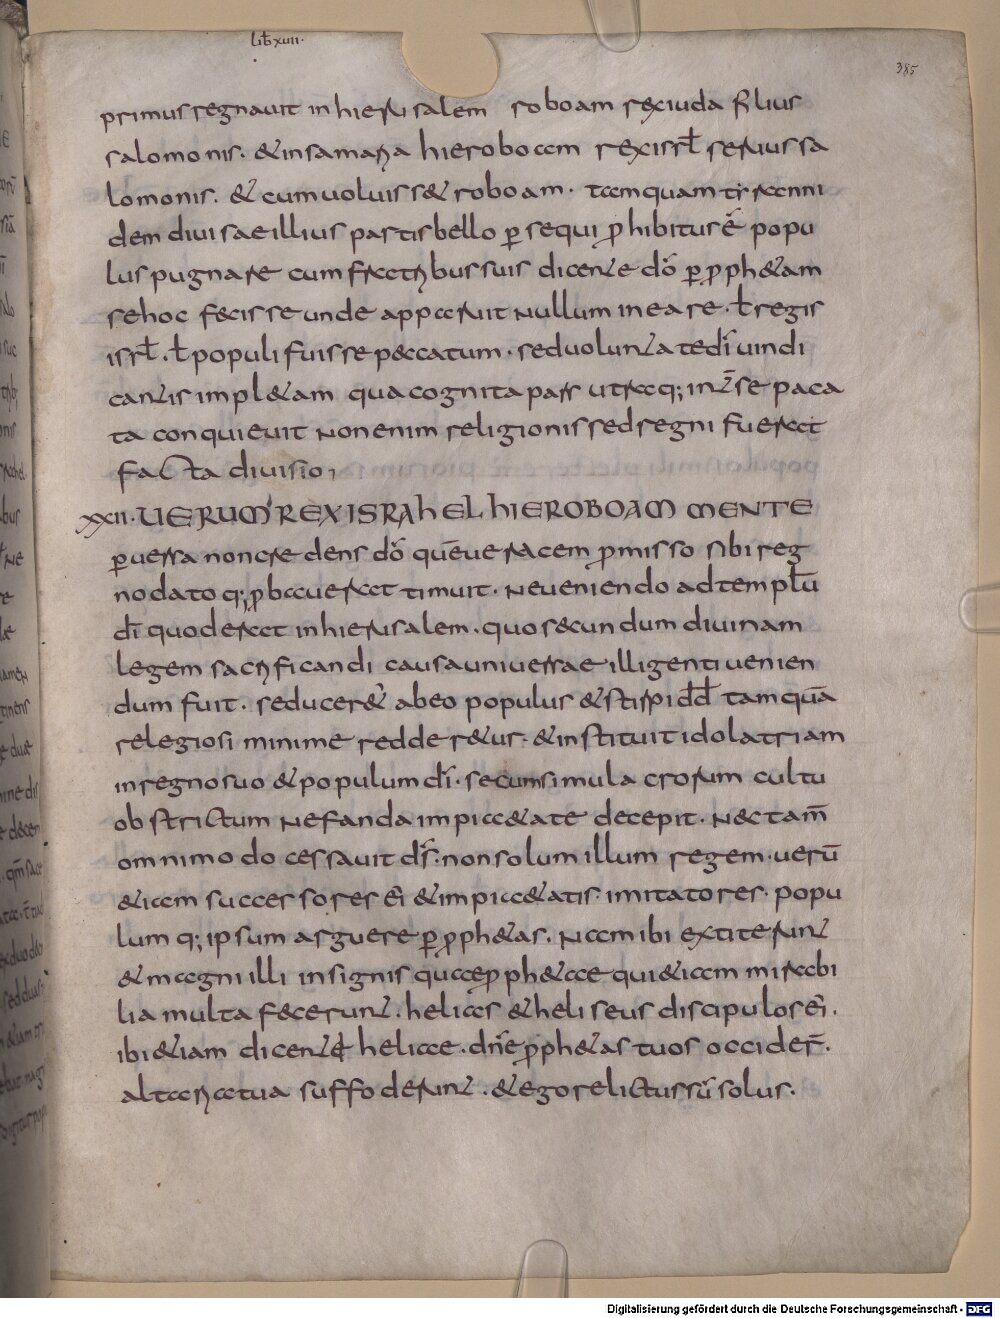 lib xvii·
385
primus regnavit in hierusalem roboam rex iuda filius
salomonis· & insamaria hieroboam rex isrł seruus sa
lomonis· & cum uoluiss& roboam· tamquam tyranni
dem diuisae illius partis bello p̱sequi p̱hibitus ē popu
lus pugnare cum fratribus suis dicente dō p̱ p̱ph&am
se hoc fecisse unde apparuit nullum in ea re· ł regis
isrł· ł populi fuisse peccatum· sed uoluntate dī uindi
cantis impl&am qua cognita pars utraq; int̄ se paca
ta conquieuit non enim religionis sed regni fuerat
facta diuisio;
xxii· UERUM REX ISRAHEL HIEROBOAM MENTE
p̱uersa non credens dō quē ueracem p̱misso sibi reg
no dato q; p̱bauerat timuit· ne ueniendo ad templū
dī quod erat in hierusalem· quo secundum diuinam
legem sacrificandi causa uniuersae illi genti uenien
dum fuit· seducer&ur ab eo populus & stirpi dd̄ tamquā
relegiosi minime redder&ur· & instituit idolatriam
in regno suo & populum dī· secum simulacrorum cultu
obstrictum nefanda impi&ate decepit· nec tam̄
omnimodo cessauit ds̄· non solum illum regem· uerū
&iam successores ei & impi&atis· imitatores· popu
lum q; ipsum arguere p̱ p̱ph&as· nam ibi extiterunt
& magni illi insignisquae p̱ph&ae qui &iam mirabi
lia multa fecerunt· helias & heliseus discipulos ei·
ibi &iam dicente heliae· dn̄e p̱ph&as tuos occider̄·
altaria tua suffoderunt· & ego relictus sū solus·
Digitalisierung gefördert durch die Deutsche Forschungsgemeinschaft - DFG